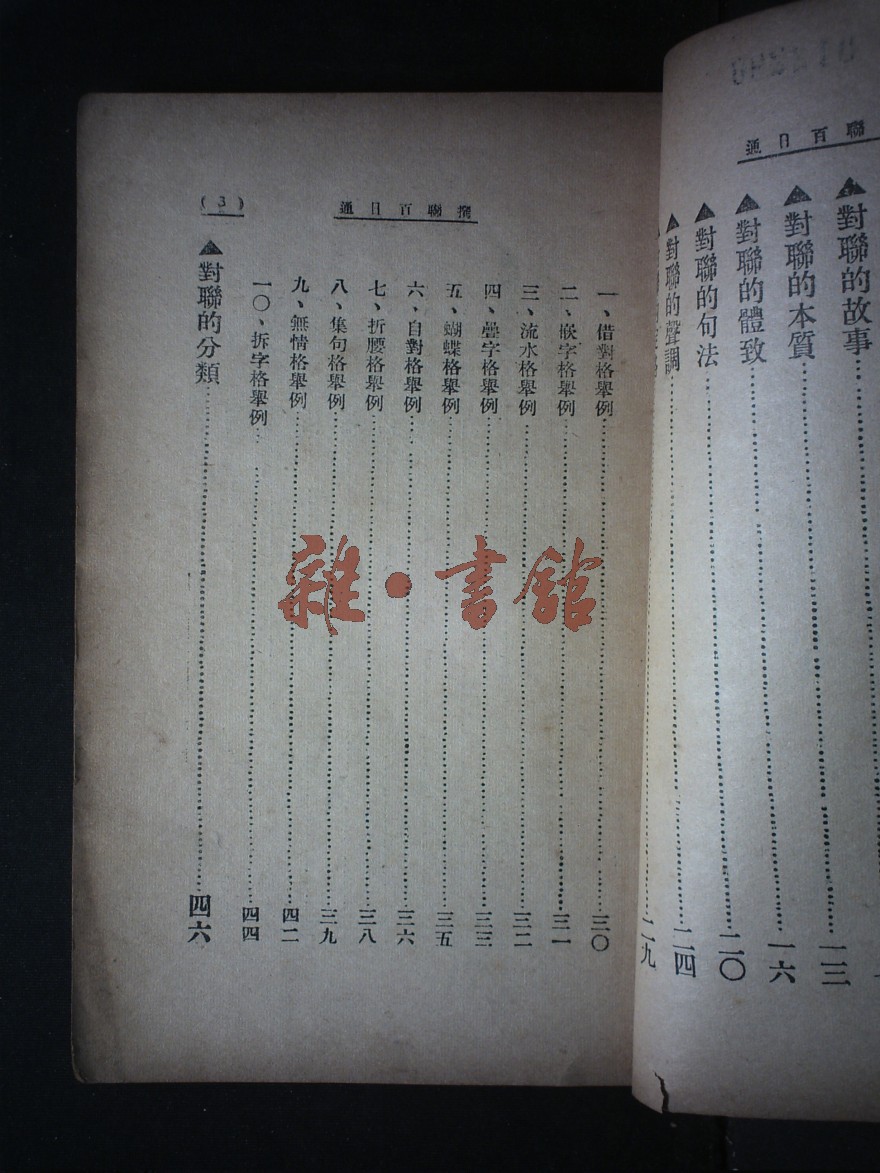 聯百日通
▲對聯的故事……一三
▲對聯的本質……一六
▲對聯的體致……二〇
▲對聯的句法……二四
▲對聯的聲調……二九
撰聯百日通
(3)
一、借對格舉例……三〇
二、嵌字格舉例……三一
三、流水格舉例……三二
四、疊字格舉例……三三
五、蝴蝶格舉例……三五
六、自對格舉例……三六
七、折腰格舉例……三八
八、集句格舉例……三九
九、無情格舉例……四二
一〇、拆字格舉例……四四
▲對聯的分類……四六
雜·書館